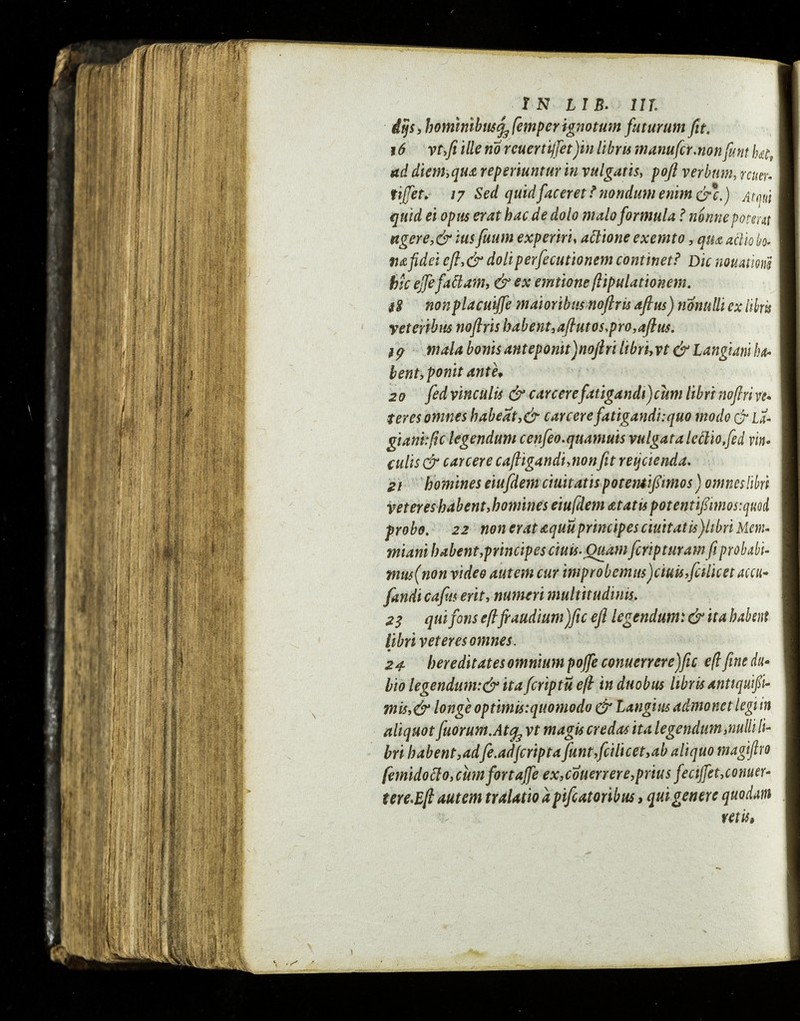 IN LIB. III.
dijs, hominibusq; semper ignotum futurum sit.
16 vt, si ille nō reuertisset)in libris manuscr.non sunt hæc,
ad diem, quæ reperiuntur in vulgatis, post verbum, reuer-
tisset. 17 Sed quid faceret? nondum enim &c.) Atqui
quid ei opus erat hac de dolo malo formula? nonne poterat
agere, & ius suum experiri, actione exemto, quæ actio bo-
næ fidei est, & doli persecutionem continet? Dic nouationē
hîc esse factam, & ex emtione stipulationem.
18 non placuisse maioribus nostris astus) nōnulli ex libris
veteribus nostris habent, astutos, pro, astus.
19 mala bonis anteponit)nostri libri, vt & Langiani ha-
bent, ponit antè.
20 sed vinculis & carcere fatigandi)cùm libri nostri ve-
teres omnes habeāt, & carcere fatigandi: quo modo & Lā-
giani: sic legendum censeo. quamuis vulgata lectio, sed vin-
culis & carcere castigandi, non sit reijcienda.
21 homines eiusdem ciuitatis potentißimos) omnes libri
veteres habent, homines eiusdem ætatis potentißimos: quod
probo. 22 non erat æquū principes ciuitatis)libri Mem-
miani habent, principes ciuis. Quam scripturam si probabi-
mus(non video autem cur improbemus)ciuis, scilicet accu-
sandi casus erit, numeri multitudinis.
23 qui fons est fraudium)sic est legendum: & ita habent
libri veteres omnes.
24 hereditates omnium posse conuerrere)sic est sine du-
bio legendum: & ita scriptū est in duobus libris antiquißi-
mis, & longè optimis: quomodo & Langius admonet legi in
aliquot suorum. Atq; vt magis credas ita legendum, nulli li-
bri habent, ad se. adscripta sunt, scilicet, ab aliquo magistro
semidocto, cùm fortasse ex, cōuerrere, prius fecisset, conuer-
tere. Est autem tralatio à piscatoribus, qui genere quodam
retis,